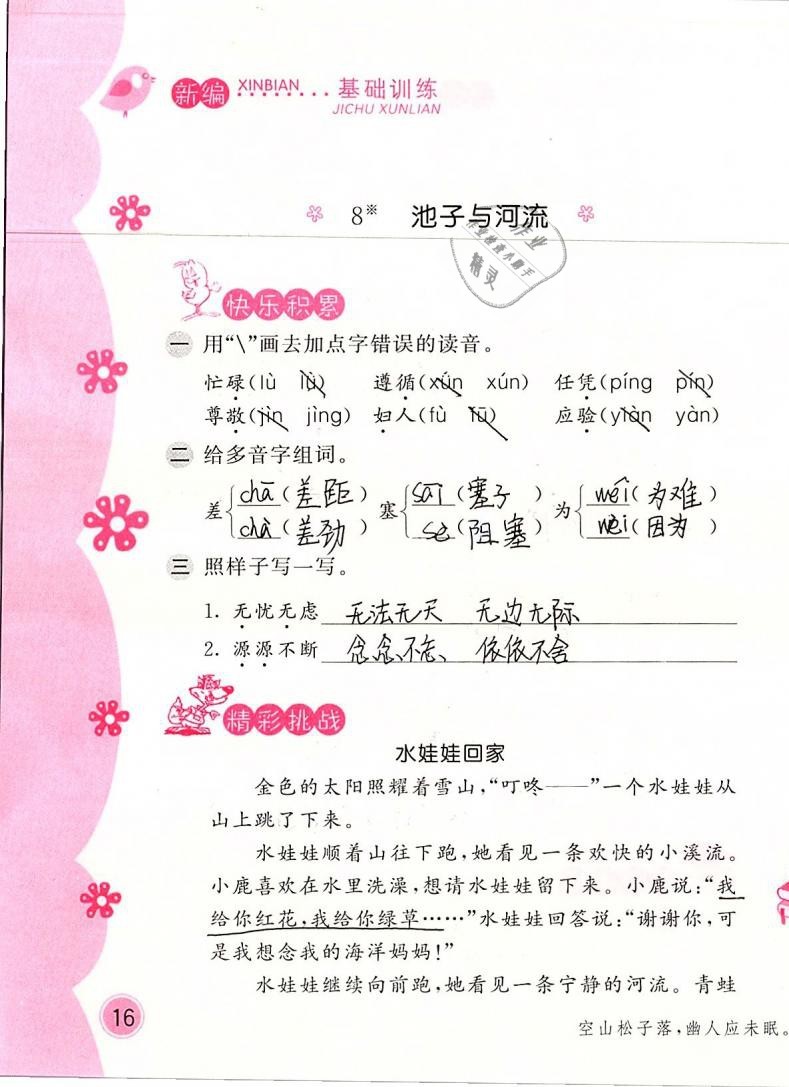 新编 XINBIAN 基础训练
JICHU XUNLIAN
8※ 池子与河流
作业
作业检查小助手
精灵
快乐积累
一 用“\”画去加点字错误的读音。
忙碌(lù lǜ) 遵循(xǘn xún) 任凭(píng pín)
尊敬(jìn jìng) 妇人(fù fū) 应验(yiàn yàn)
二 给多音字组词。
差 chā(差距) 塞 sāi(塞子) 为 wéi(为难)
chà(差劲) sè(阻塞) wèi(因为)
三 照样子写一写。
1. 无忧无虑 无法无天 无边无际
2. 源源不断 念念不忘、 依依不舍
精彩挑战
水娃娃回家
金色的太阳照耀着雪山,“叮咚——”一个水娃娃从
山上跳了下来。
水娃娃顺着山往下跑,她看见一条欢快的小溪流。
小鹿喜欢在水里洗澡,想请水娃娃留下来。小鹿说:“我
给你红花,我给你绿草……”水娃娃回答说:“谢谢你,可
是我想念我的海洋妈妈!”
水娃娃继续向前跑,她看见一条宁静的河流。青蛙
16
空山松子落,幽人应未眠。